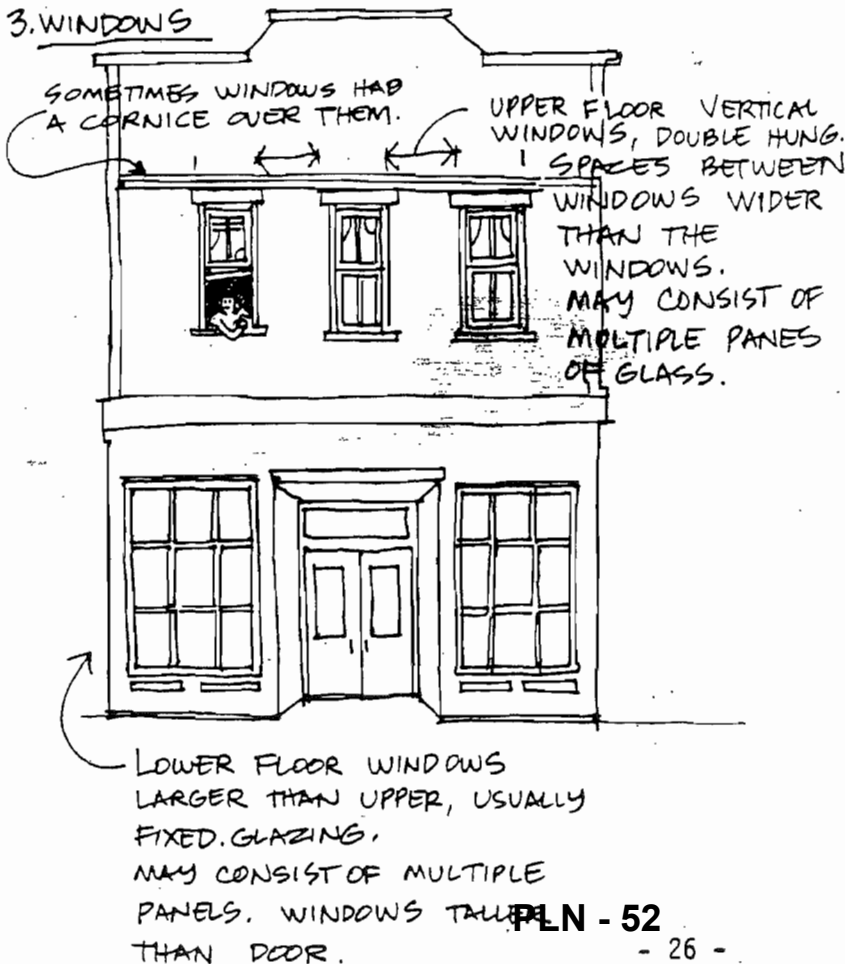 3. WINDOWS
SOMETIMES WINDOWS HAD
A CORNICE OVER THEM.
UPPER FLOOR VERTICAL
WINDOWS, DOUBLE HUNG.
SPACES BETWEEN
WINDOWS WIDER
THAN THE
WINDOWS.
MAY CONSIST OF
MULTIPLE PANES
OF GLASS.
LOWER FLOOR WINDOWS
LARGER THAN UPPER, USUALLY
FIXED. GLAZING.
MAY CONSIST OF MULTIPLE
PANELS. WINDOWS TALLER
THAN DOOR.
PLN - 52
- 26 -